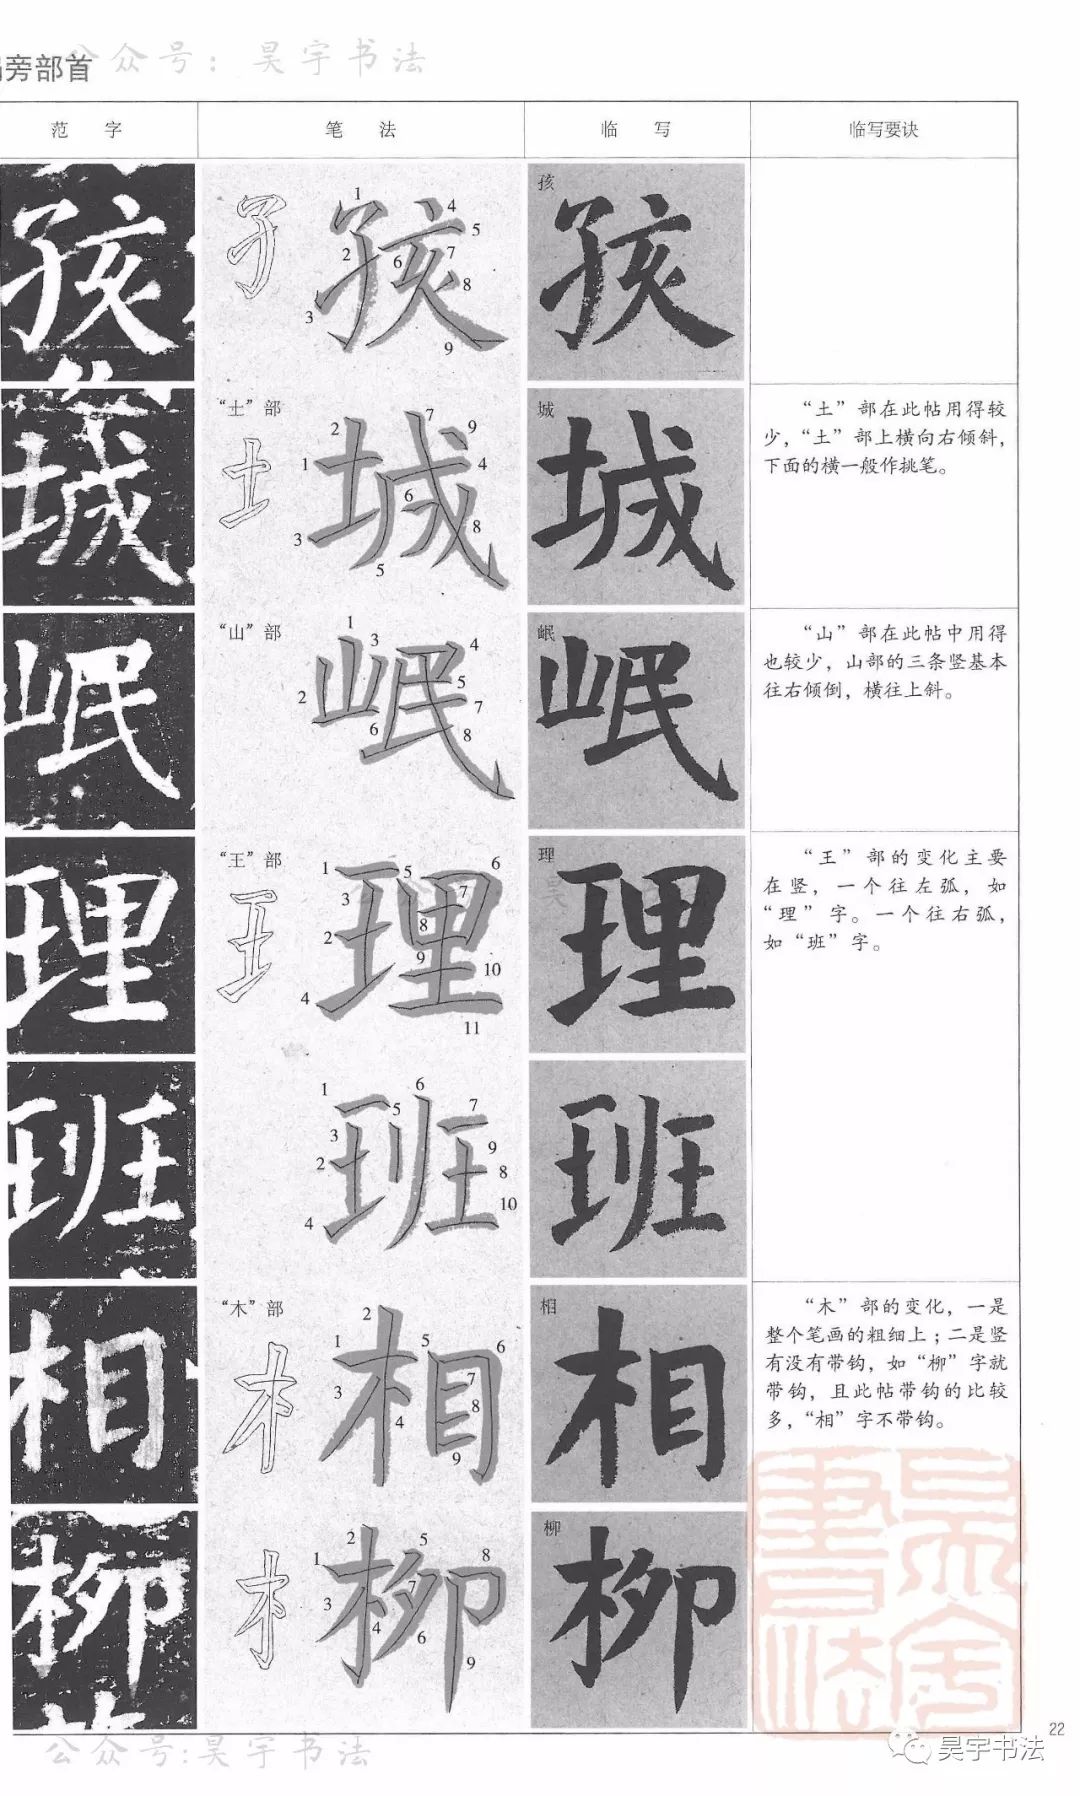 公众号：昊宇书法
旁部首
范 字 笔 法 临 写 临写要诀
孩
1 4 5 2 6 7 8 3 9
“土”部
城
2 7 9 1 4 6 8 3 5
“土”部在此帖用得较
少，“土”部上横向右倾斜，
下面的横一般作挑笔。
“山”部
岷
1 3 4 5 2 7 6 8
“山”部在此帖中用得
也较少，山部的三条竖基本
往右倾倒，横往上斜。
“王”部
理
1 5 6 3 7 8 2 9 10 4 11
“王”部的变化主要
在竖，一个往左弧，如
“理”字。一个往右弧，
如“班”字。
班
1 6 5 7 3 9 2 8 10 4
“木”部
相
2 1 5 6 3 7 8 4 9
“木”部的变化，一是
整个笔画的粗细上；二是竖
有没有带钩，如“柳”字就
带钩，且此帖带钩的比较
多，“相”字不带钩。
柳
2 5 8 1 7 3 4 6 9
22
公众号:昊宇书法
昊宇书法